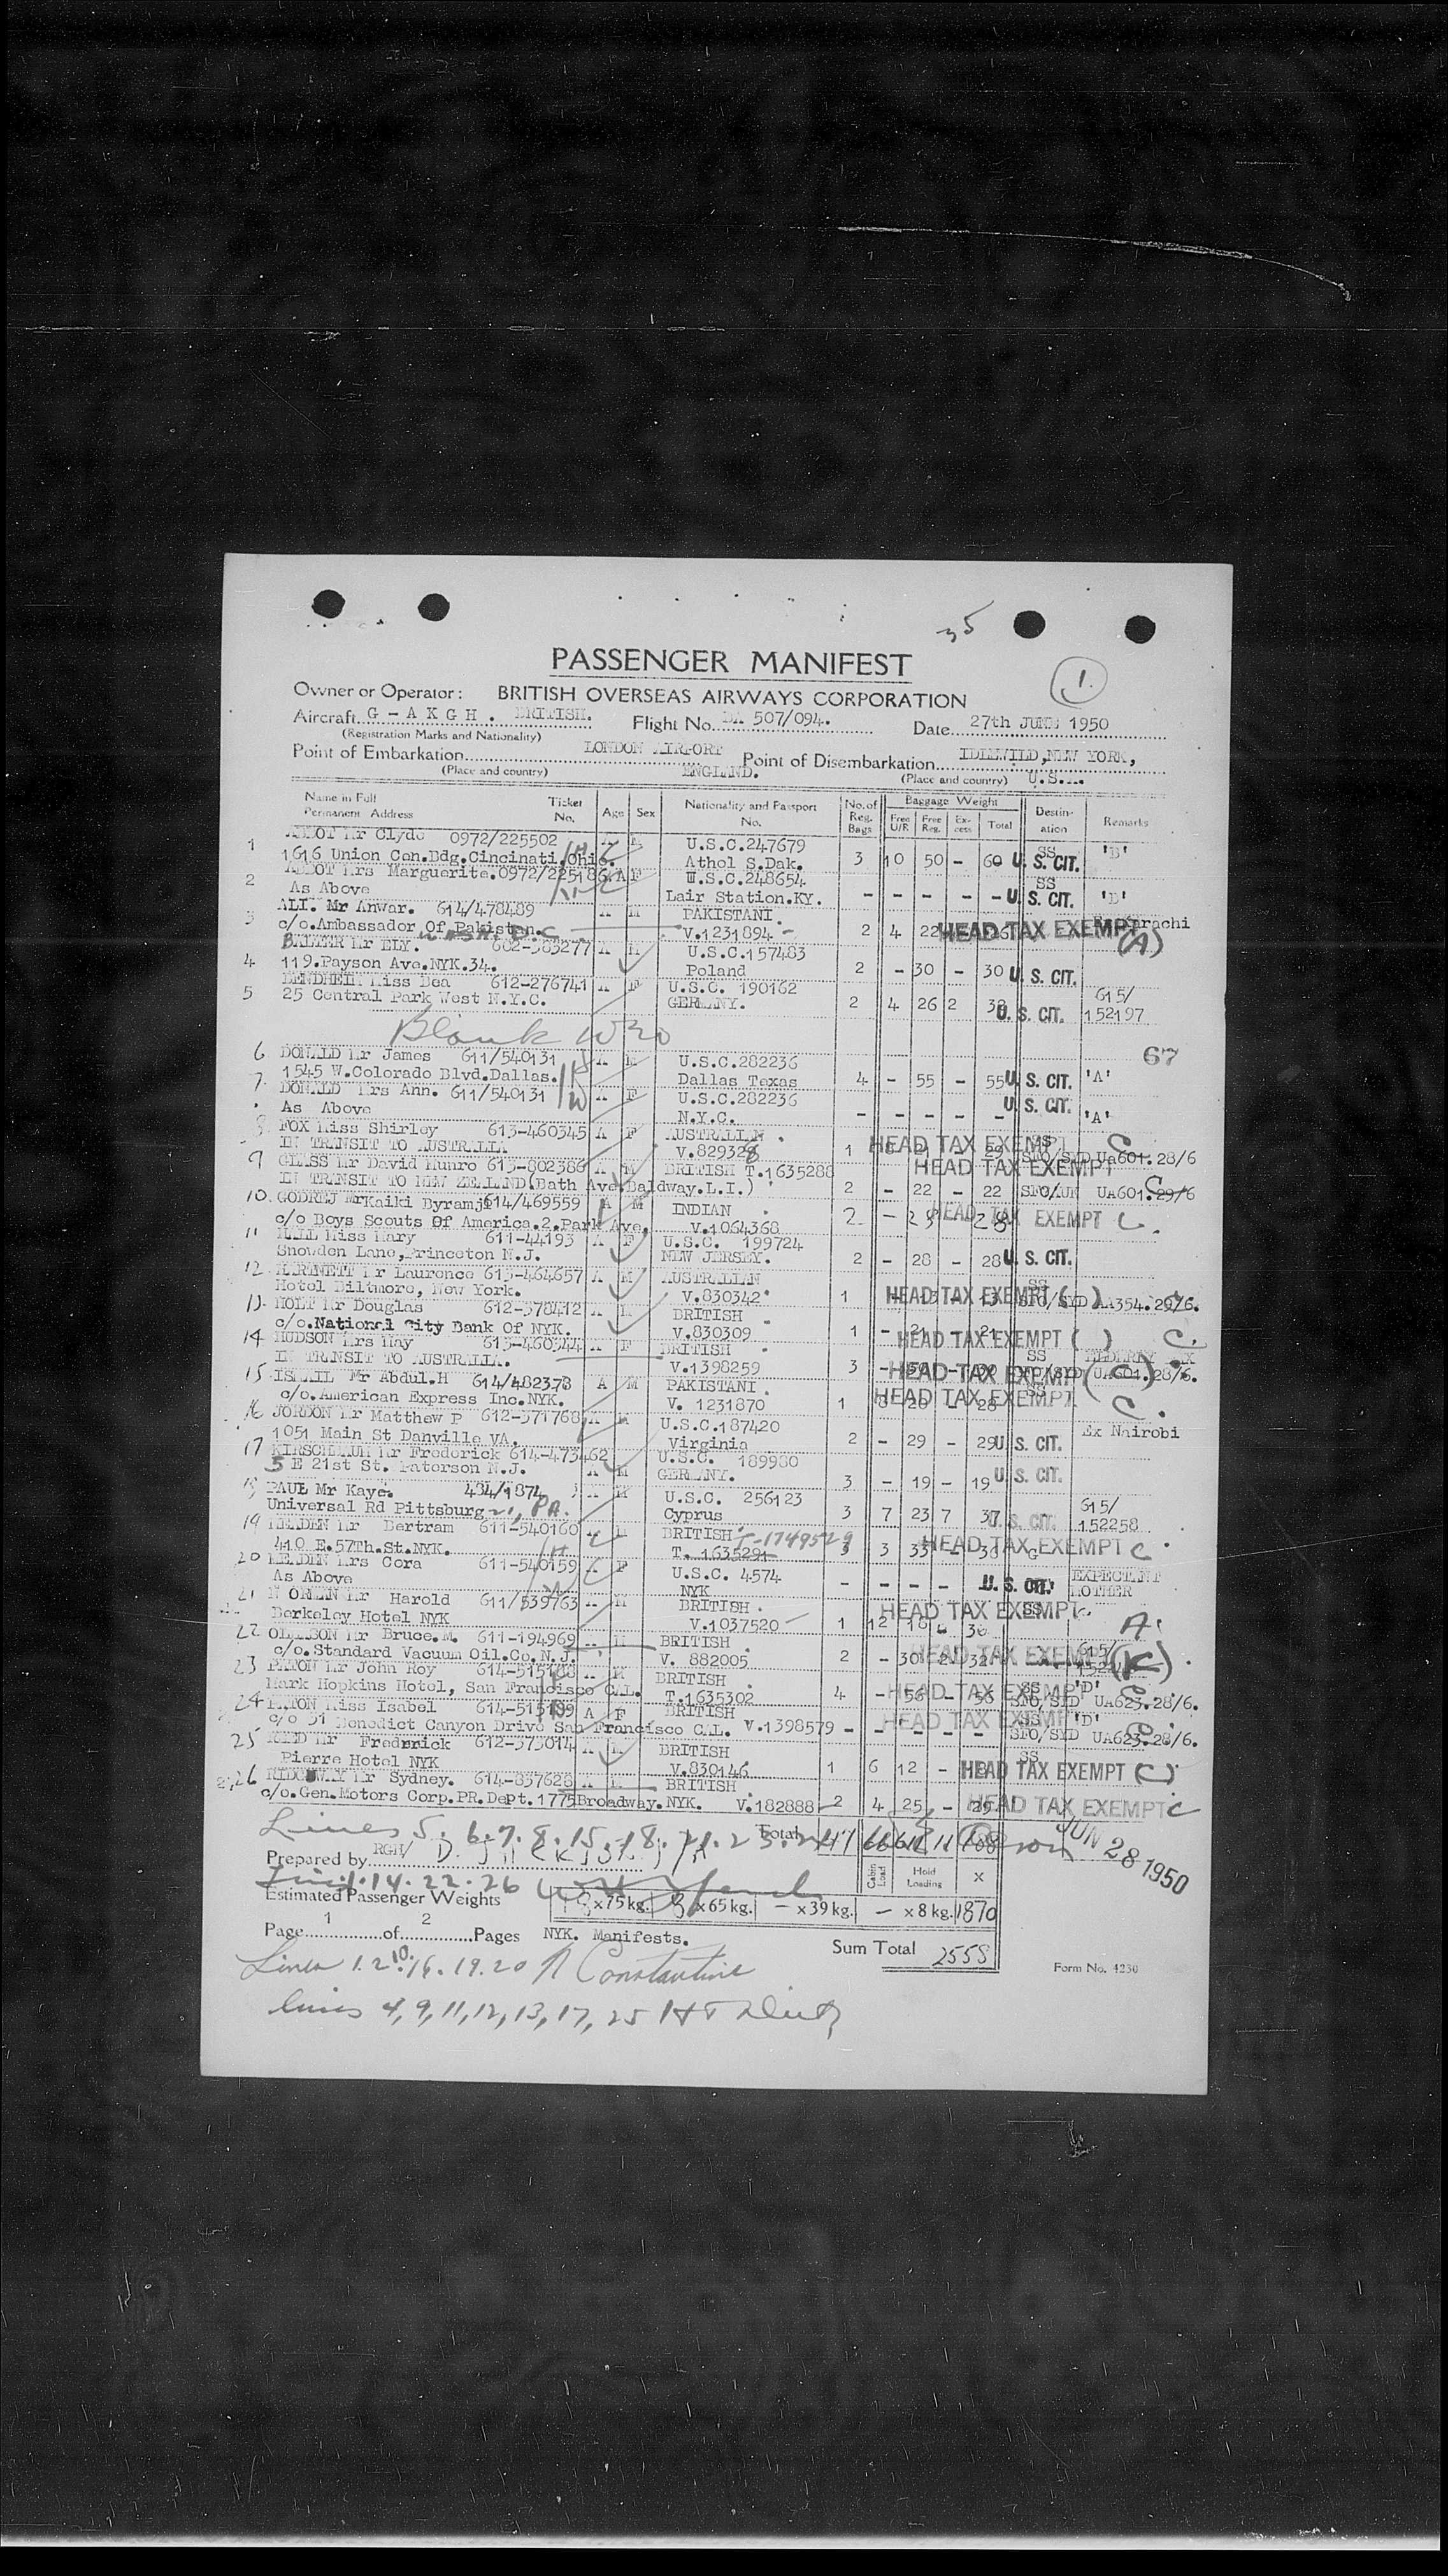 35
PASSENGER MANIFEST
1.
Owner or Operator: BRITISH OVERSEAS AIRWAYS CORPORATION
Aircraft G - A K G H . BRITISH. Flight No. BA 507/094. Date 27th JUNE 1950
(Registration Marks and Nationality)
Point of Embarkation LONDON AIRPORT ENGLAND. Point of Disembarkation IDLEWILD, NEW YORK, U.S.A.
(Place and country) (Place and country)
Name in Full Permanent Address Ticket No. Age Sex Nationality and Passport No. No. of Reg. Bags Baggage Weight Free U/R Free Reg. Excess Total Destination Remarks
1 Mr Clyde 0972/225502 A M U.S.C.247679 SS 'B'
1616 Union Cen.Bdg.Cincinati.Ohio. Athol S.Dak. 3 10 50 - 60 U. S. CIT.
2 Mrs Marguerite.0972/225186 A F U.S.C.248654 SS
As Above Lair Station.KY. - - - - - U. S. CIT. 'B'
3 ALI. Mr Anwar. 614/478489 A M PAKISTANI.
c/o.Ambassador Of Pakistan. V.1231894 - 2 4 22 HEAD TAX EXEMPT Karachi (A)
4 Mr ELY. 602-383277 A M U.S.C.157483
119.Payson Ave.NYK.34. Poland 2 - 30 - 30 U. S. CIT.
5 BENDHEIM Miss Bea 612-276741 A F U.S.C. 190162 615/
25 Central Park West N.Y.C. GERMANY. 2 4 26 2 U. S. CIT. 152197
Blank
67
6 DONALD Mr James 611/540131 A M U.S.C.282236
1545 W.Colorado Blvd.Dallas. Dallas Texas 4 - 55 - 55 U. S. CIT. 'A'
7. DONALD Mrs Ann. 611/540131 A F U.S.C.282236 U. S. CIT.
As Above N.Y.C. - - - - - 'A'
8 FOX Miss Shirley 613-460345 A F AUSTRALIAN. HEAD TAX EXEMPT SS C
IN TRANSIT TO AUSTRALIA V.829328 1 29 SFO/SYD UA601.28/6
9 GLASS Mr David Munro 613-802386 A M BRITISH T.1635288 HEAD TAX EXEMPT
IN TRANSIT TO NEW ZEALAND(Bath Ave.Baldway.L.I.) 2 - 22 - 22 SFO/AUK UA601.29/6 C
10. GODREJ Mr Kaiki Byramji 614/469559 A M INDIAN .
c/o Boys Scouts Of America.2.Park Ave. V.1064368 2 - 28 HEAD TAX EXEMPT C.
11 HALL Miss Mary 611-44193 A F U.S.C. 199724
Snowden Lane,Princeton N.J. NEW JERSEY. 2 - 28 - 28 U. S. CIT.
12. HARTNETT Mr Laurence 613-464657 A M AUSTRALIAN SS
Hotel Biltmore, New York. V.830342 1 HEAD TAX EXEMPT ( ) SFO/SYD AA354.29/6.
13. HOLT Mr Douglas 612-378412 A M BRITISH
c/o.National City Bank Of NYK. V.830309 1 - 21 - 21 HEAD TAX EXEMPT ( ) C.
14 HUDSON Mrs May 613-460344 A F BRITISH SS ELDERLY
IN TRANSIT TO AUSTRALIA. V.1398259 3 HEAD TAX EXEMPT (C) UA601.28/6.
15 ISMAIL Mr Abdul.H 614/482373 A M PAKISTANI. SS
c/o.American Express Inc.NYK. V. 1231870 1 8 20 - 28 HEAD TAX EXEMPT C.
16 JORDON Mr Matthew P 612-371768 A M U.S.C.187420
1051 Main St Danville VA. Virginia 2 - 29 - 29 U. S. CIT. Ex Nairobi
17 KIRSCHBAUM Mr Frederick 614-473462 U.S.C. 189980
5 E 21st St. Paterson N.J. A M GERMANY. 3 - 19 - 19 U. S. CIT.
18 PAUL Mr Kaye. 484/1874 A M U.S.C. 256123 615/
Universal Rd Pittsburg 21, PA. Cyprus 3 7 23 7 37 U. S. CIT. 152258
19 Mr Bertram 611-540160 A M BRITISH T-1749529
410 E.57Th.St.NYK. T. 1635291 3 3 33 HEAD TAX EXEMPT C
20 Mrs Cora 611-540159 A F U.S.C. 4574 EXPECTANT
As Above NYK - - - - U. S. CIT. MOTHER
21 Mr Harold 611/539763 A M BRITISH . SS
Berkeley Hotel NYK V.1037520 1 12 18 - 30 HEAD TAX EXEMPT A.
22 Mr Bruce.M. 611-194969 A M BRITISH . 615/
c/o.Standard Vacuum Oil.Co.N.J. V. 882005 2 - 30 2 32 HEAD TAX EXEMPT (K)
23 PATON Mr John Roy 614-515198 A M BRITISH . SS 'D'
Mark Hopkins Hotel, San Francisco CAL. T.1635302 4 - 56 - 56 HEAD TAX EXEMPT SFO/SYD UA623.28/6.
24 PATON Miss Isabel 614-515199 A F BRITISH SS 'D'
c/o 51 Benedict Canyon Drive San Francisco CAL. V.1398579 - - - - - HEAD TAX EXEMPT SFO/SYD UA623.28/6.
25 REID Mr Frederick 612-373014 A M BRITISH SS
Pierre Hotel NYK V.830146 1 6 12 - 18 HEAD TAX EXEMPT (C)
26 RIDGWAY Mr Sydney. 614-837628 A M BRITISH
c/o.Gen.Motors Corp.PR.Dept.1775Broadway.NYK. V.182888 2 4 25 - 29 HEAD TAX EXEMPT C
Lines 5. 6. 7. 8. 15. 18. 21. 23. 24 Total 47 66 11
JUN 28 1950
Prepared by RGH/ Cabin Load Hold Loading X
14. 22. 26
Estimated Passenger Weights 18 x75kg. 8 x65kg. - x39kg. - x8kg. 1870
Page 1 of 2 Pages NYK. Manifests.
Sum Total 2558
Form No. 4230
Lines 1. 2. 10. 16. 19. 20 Constantine
lines 4, 9, 11, 12, 13, 17, 25